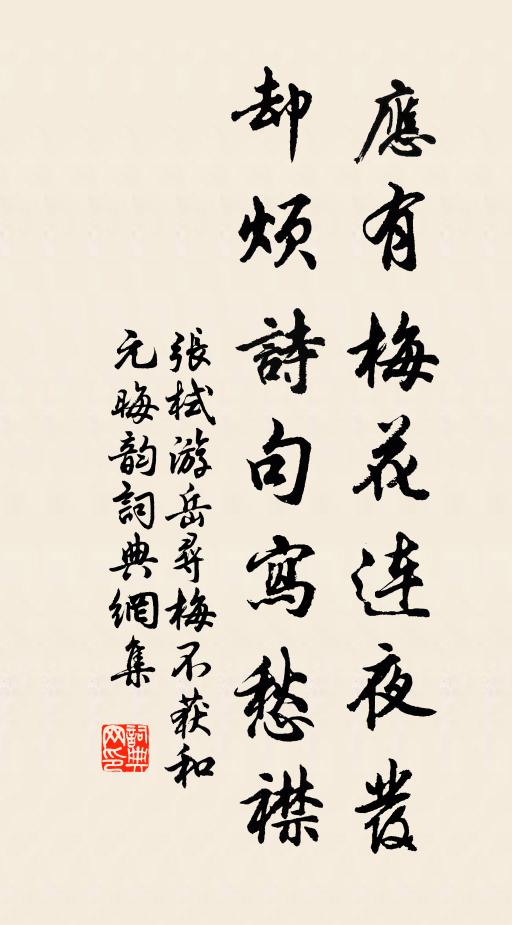 應有梅花连夜發
却烦詩句寫愁襟
張栻游岳尋梅不获和
元晦韵詞典網集
詞典
网印